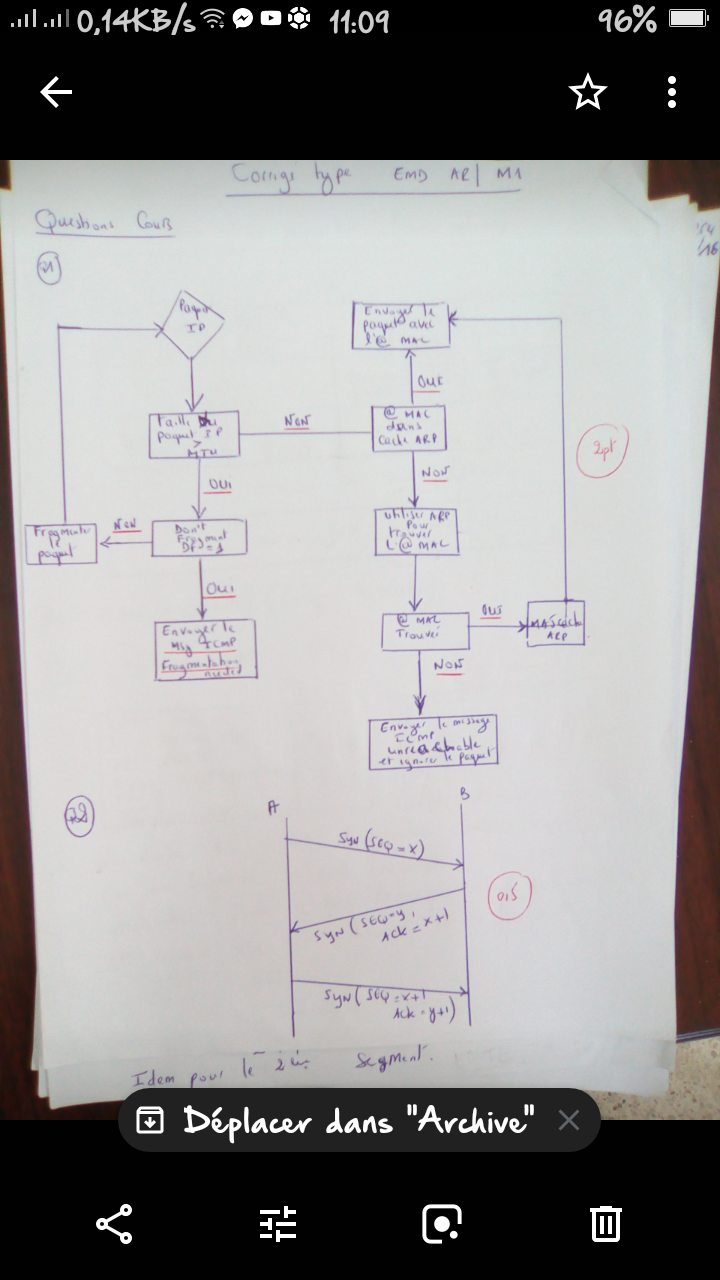 0,14KB/s
11:09
96%
Corrigé type EMD AR/ M1
Questions Cours
Q1
Paquet
IP
Taille Du
paquet IP
>
MTU
NON
OUI
Don't
Fragment
DF = 1
NON
Fragmenter
paquet
OUI
Envoyer le
Msg ICMP
Fragmentation
needed
Envoyer le
paquet avec
l'@ MAC
OUI
@ MAC
dans
Cache ARP
NON
utiliser ARP
Pour
trouver
L'@ MAC
@ MAC
Trouvé
OUI
ARP
NON
Envoyer le message
ICMP
unreachable
et ignorer le paquet
2pt
Q2
A
B
SYN (SEQ = x)
SYN (SEQ = y,
Ack = x+1)
SYN (SEQ = x+1
Ack = y+1)
0,5
Idem pour le 2 segment.
Déplacer dans "Archive"